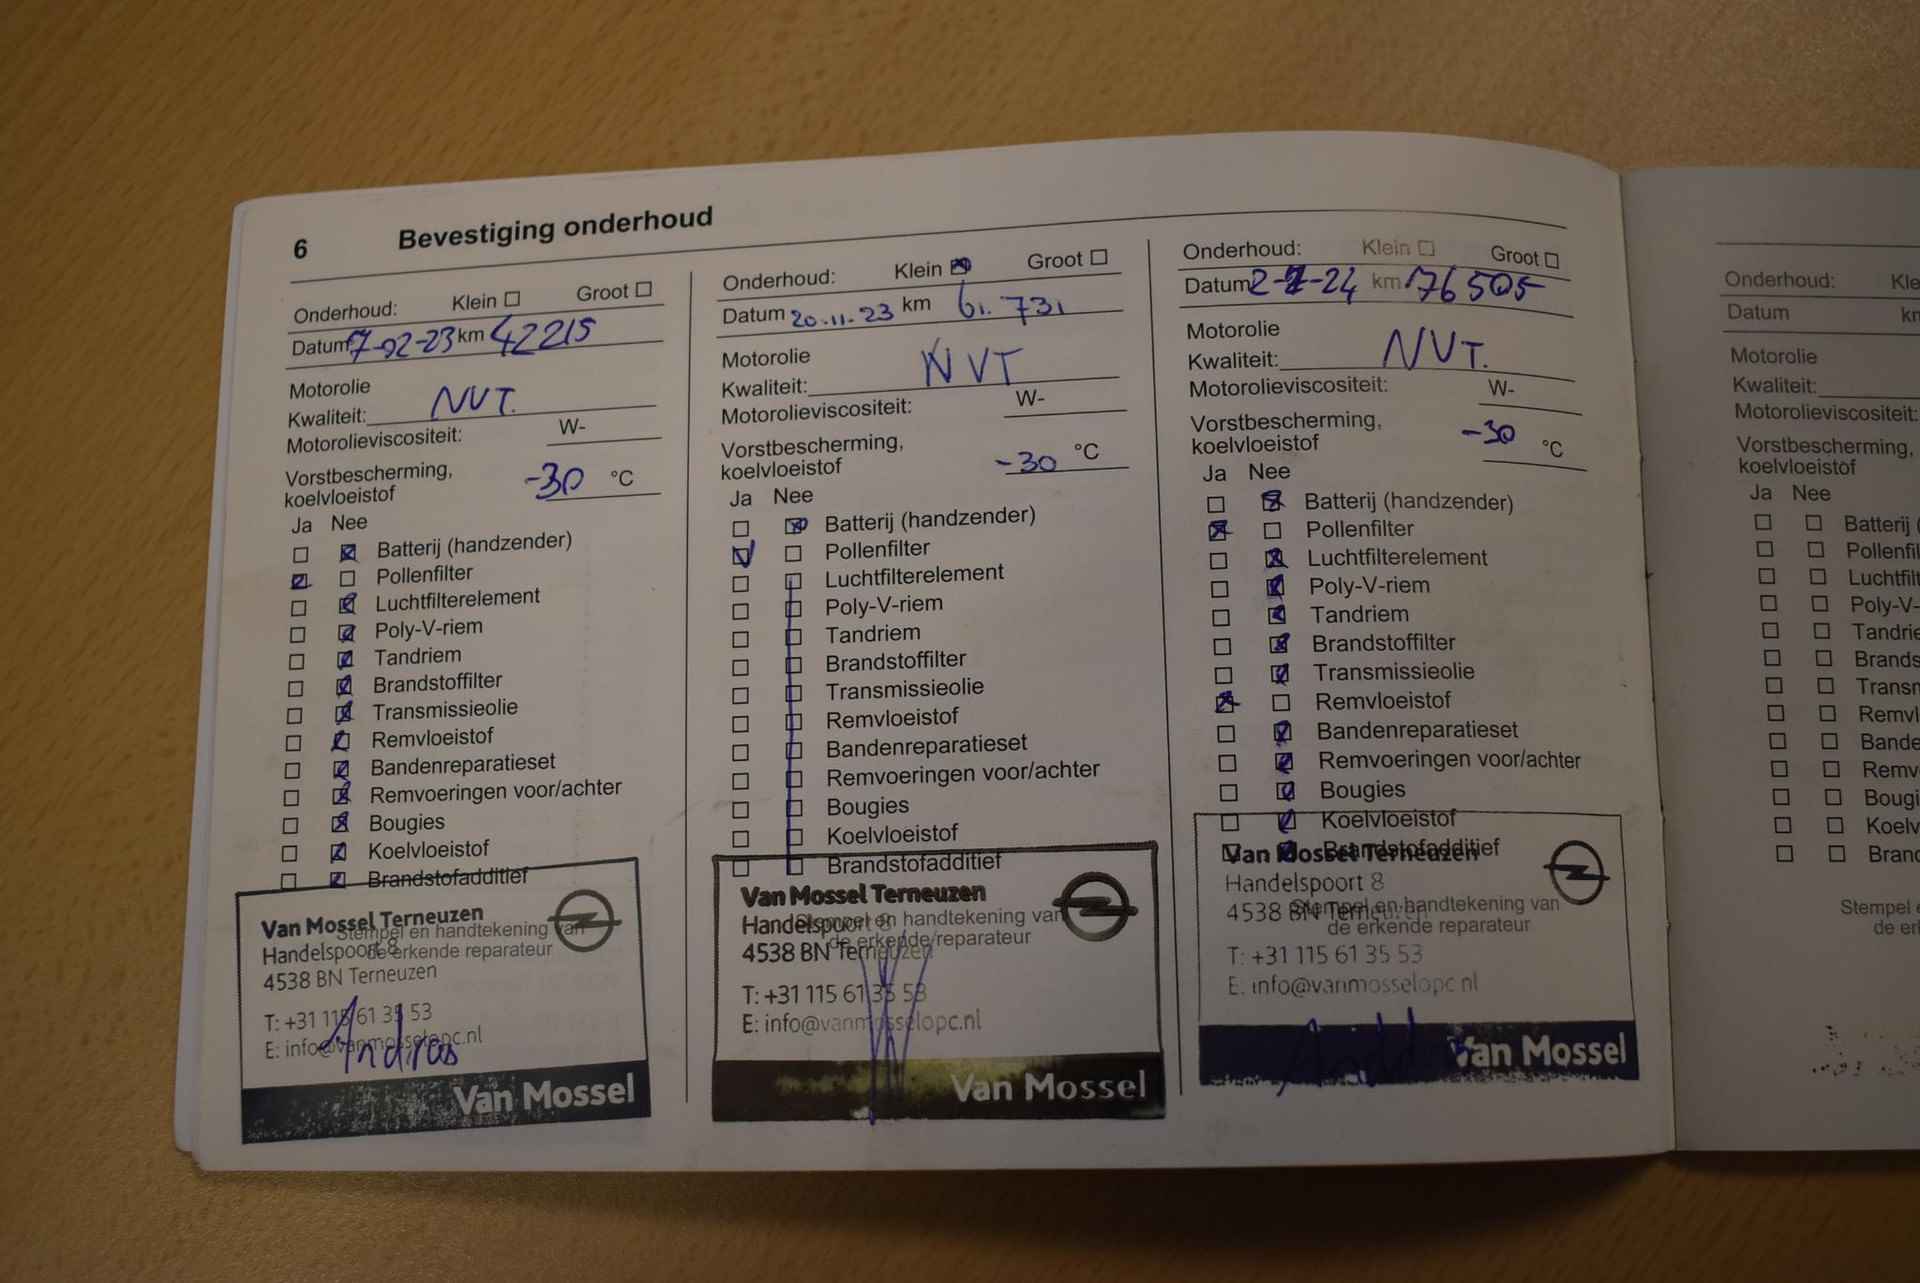 6 Bevestiging onderhoud
Onderhoud: Klein Groot
Datum 7-02-23 km 42215
Motorolie
Kwaliteit: NVT.
Motorolieviscositeit: W-
Vorstbescherming,
koelvloeistof -30 °C
Ja Nee
Batterij (handzender)
Pollenfilter
Luchtfilterelement
Poly-V-riem
Tandriem
Brandstoffilter
Transmissieolie
Remvloeistof
Bandenreparatieset
Remvoeringen voor/achter
Bougies
Koelvloeistof
Brandstofadditief
Van Mossel Terneuzen
Stempel en handtekening van
Handelspoort 8
de erkende reparateur
4538 BN Terneuzen
T: +31 115 61 35 53
E: info@vanmosselopc.nl
Andras
Van Mossel
Onderhoud: Klein Groot
Datum 20-11-23 km 61.731
Motorolie
Kwaliteit: NVT
Motorolieviscositeit: W-
Vorstbescherming,
koelvloeistof -30 °C
Ja Nee
Batterij (handzender)
Pollenfilter
Luchtfilterelement
Poly-V-riem
Tandriem
Brandstoffilter
Transmissieolie
Remvloeistof
Bandenreparatieset
Remvoeringen voor/achter
Bougies
Koelvloeistof
Brandstofadditief
Van Mossel Terneuzen
Stempel en handtekening van
Handelspoort 8
de erkende reparateur
4538 BN Terneuzen
T: +31 115 61 35 53
E: info@vanmosselopc.nl
Van Mossel
Onderhoud: Klein Groot
Datum km 76505
Motorolie
Kwaliteit: NVT.
Motorolieviscositeit: W-
Vorstbescherming,
koelvloeistof -30 °C
Ja Nee
Batterij (handzender)
Pollenfilter
Luchtfilterelement
Poly-V-riem
Tandriem
Brandstoffilter
Transmissieolie
Remvloeistof
Bandenreparatieset
Remvoeringen voor/achter
Bougies
Koelvloeistof
Brandstofadditief
Van Mossel Terneuzen
Handelspoort 8
Stempel en handtekening van
4538 BN Terneuzen
de erkende reparateur
T: +31 115 61 35 53
E: info@vanmosselopc.nl
Van Mossel
Onderhoud: Kle
Datum km
Motorolie
Kwaliteit:
Motorolieviscositeit:
Vorstbescherming,
koelvloeistof
Ja Nee
Batterij (
Pollenfil
Luchtfilt
Poly-V-
Tandrie
Brands
Transm
Remvl
Bande
Remv
Bougi
Koelv
Brand
Stempel e
de erk